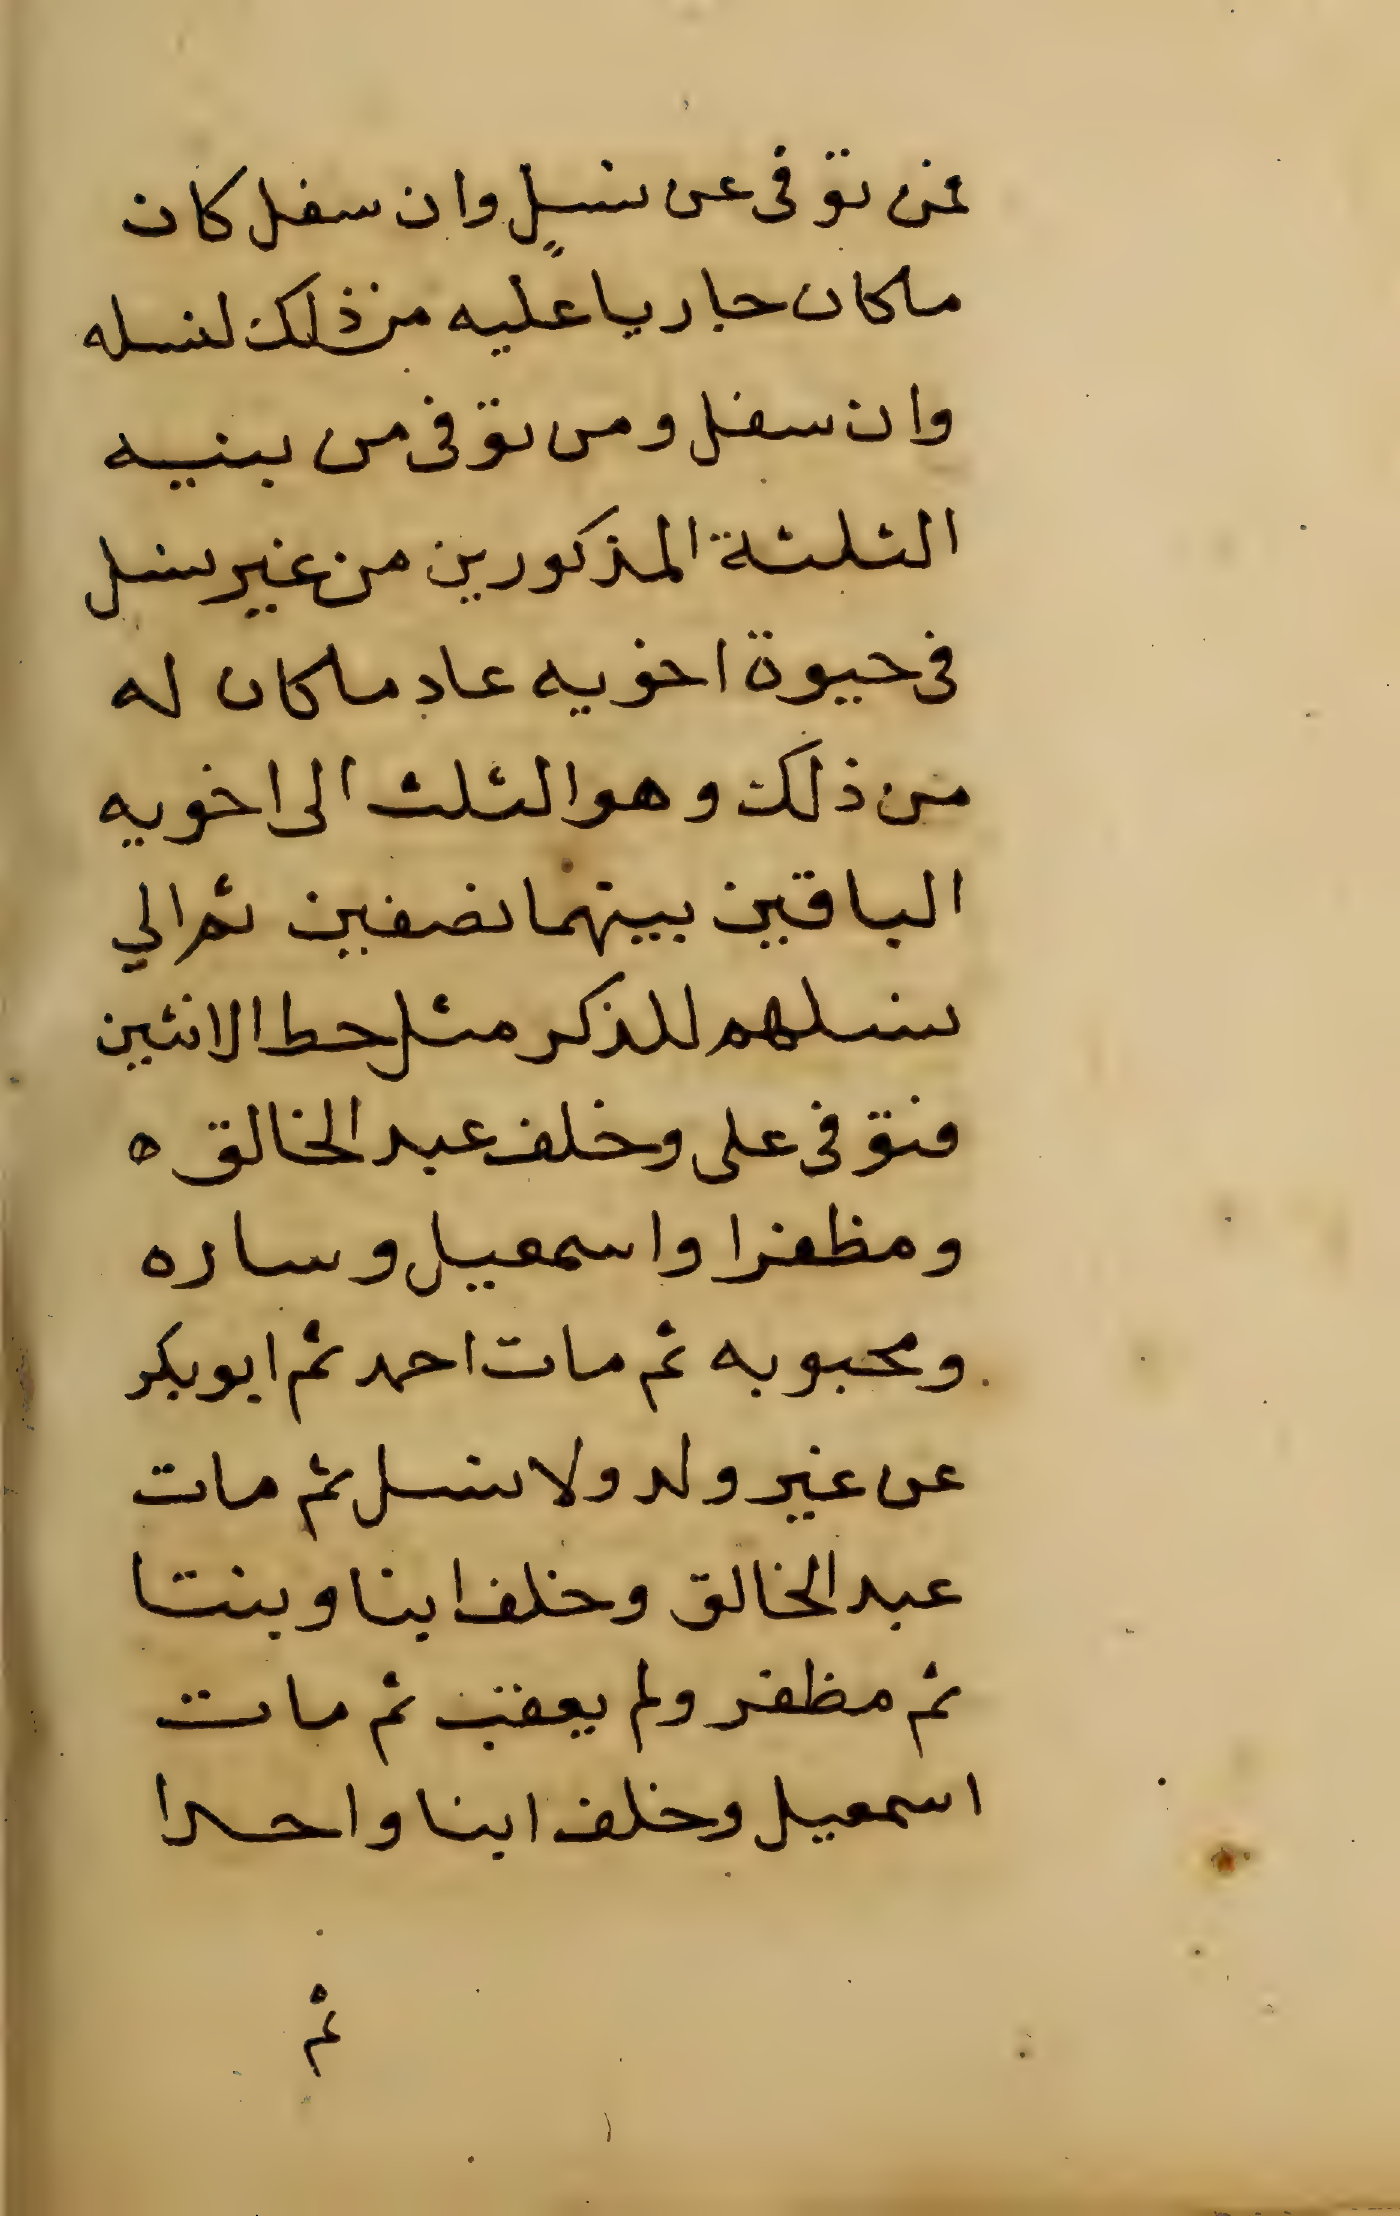 فمن توفى عن نسل وان سفل كان
ما كان جاريا عليه من ذلك لنسله
وان سفل ومن توفى من بنيه
الثلثة المذكورين من غير نسل
فى حيوة اخويه عاد ما كان له
من ذلك وهو الثلث الى اخويه
الباقين بينهما نصفين ثم الي
نسلهم للذكر مثل حظ الانثيين
فتوفى على وخلف عبد الخالق ه
ومظفرا واسمعيل وساره
ومحبوبه ثم مات احمد ثم ابو بكر
عن غير ولد ولا نسل ثم مات
عبد الخالق وخلف ابنا وبنتا
ثم مظفر ولم يعقب ثم مات
اسمعيل وخلف ابنا واحدا
ثم